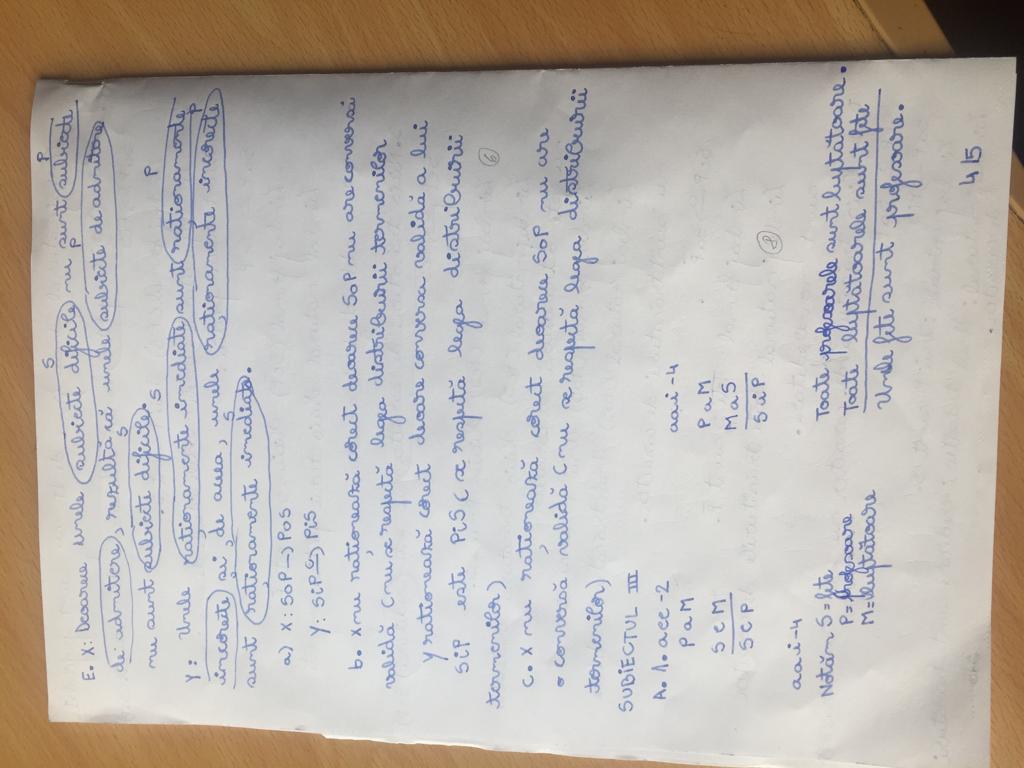 E. X: Deoarece unele subiecte dificile nu sunt subiecte
S P
de admitere, rezultă că unele subiecte de admitere
S P
nu sunt subiecte dificile.
S P
Y: Unele raționamente imediate sunt raționamente
incorecte și, de aceea, unele raționamente incorecte
S P
sunt raționamente imediate.
a) X: SoP → PoS
Y: SiP → PiS
b. X nu raționează corect deoarece SoP nu are conversă
validă (nu se respectă legea distribuirii termenilor
Y raționează corect deoarece conversa validă a lui
SiP este PiS (se respectă legea distribuirii
termenilor)
6
c. X nu raționează corect deoarece SoP nu are
o conversă validă (nu se respectă legea distribuirii
termenilor)
SUBIECTUL III
A. 1. aee-2 aai-4
PaM PaM
SeM MaS
SeP SiP
8
aai-4
Notăm S = fete
P = profesoare
M = luptătoare
Toate profesoarele sunt luptătoare.
Toate luptătoarele sunt fete
Unele fete sunt profesoare.
4/5